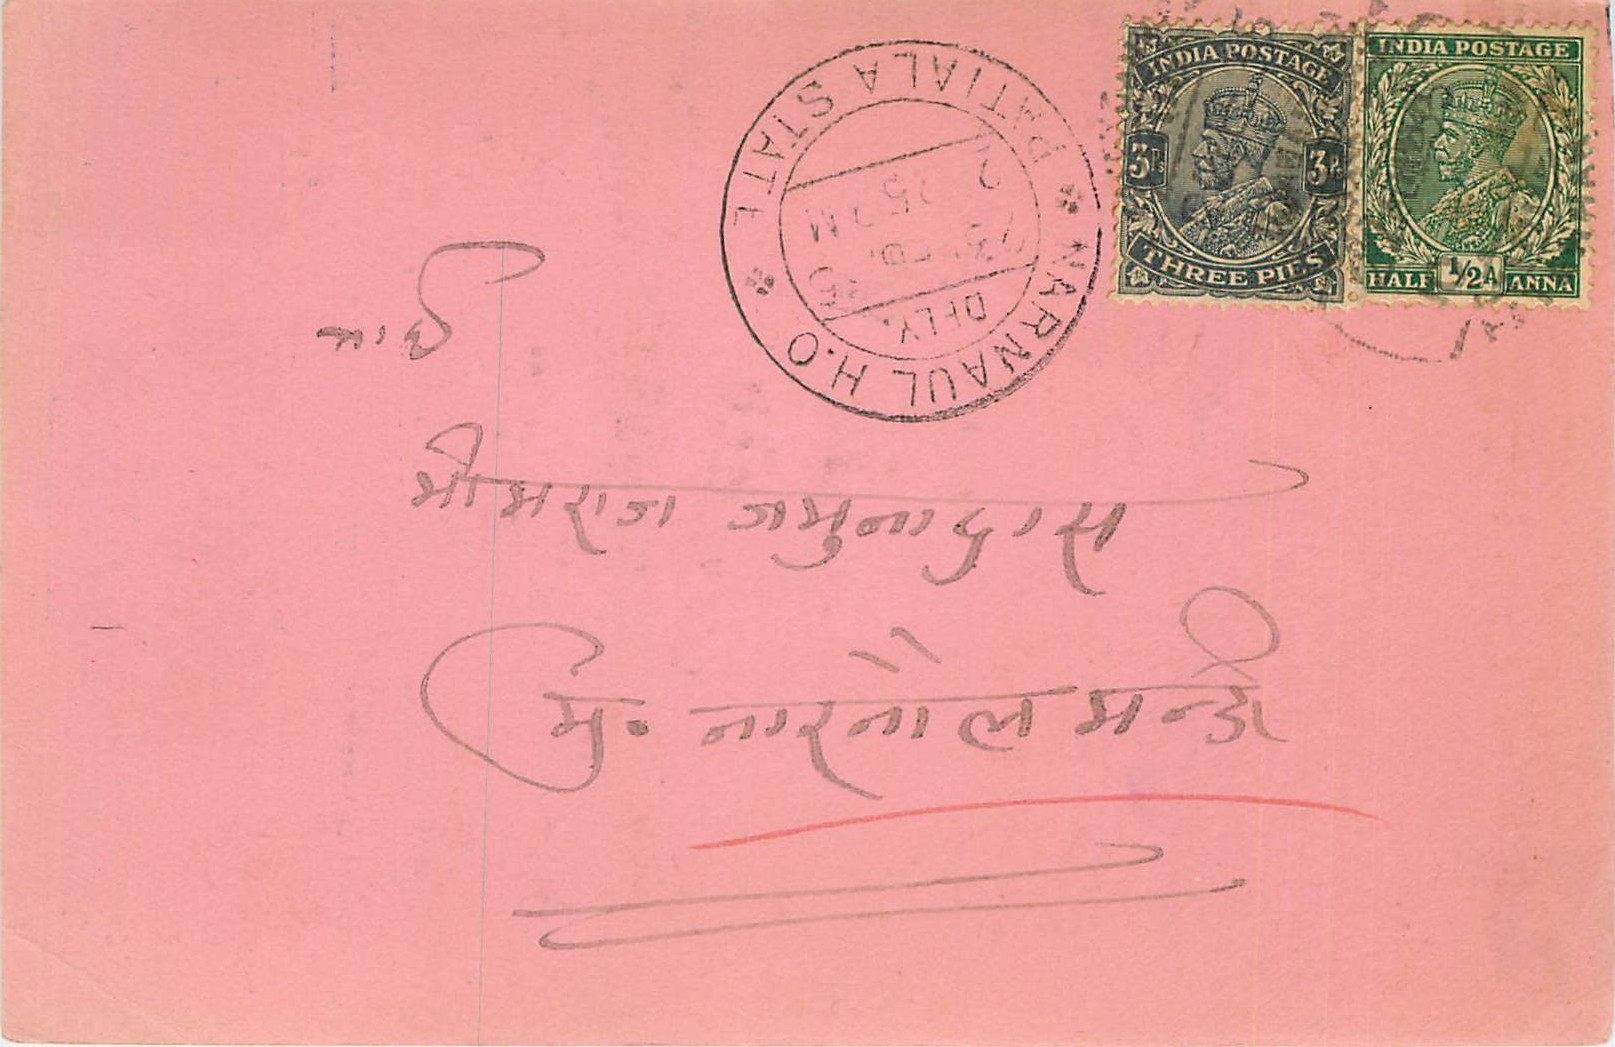 INDIA POSTAGE
3P 3P
THREE PIES
INDIA POSTAGE
HALF 1/2A ANNA
NARNAUL H.O
PATIALA STATE
DELY.
35
भाई
भीमराज जमुनादास
मु. नारनौल मन्डी